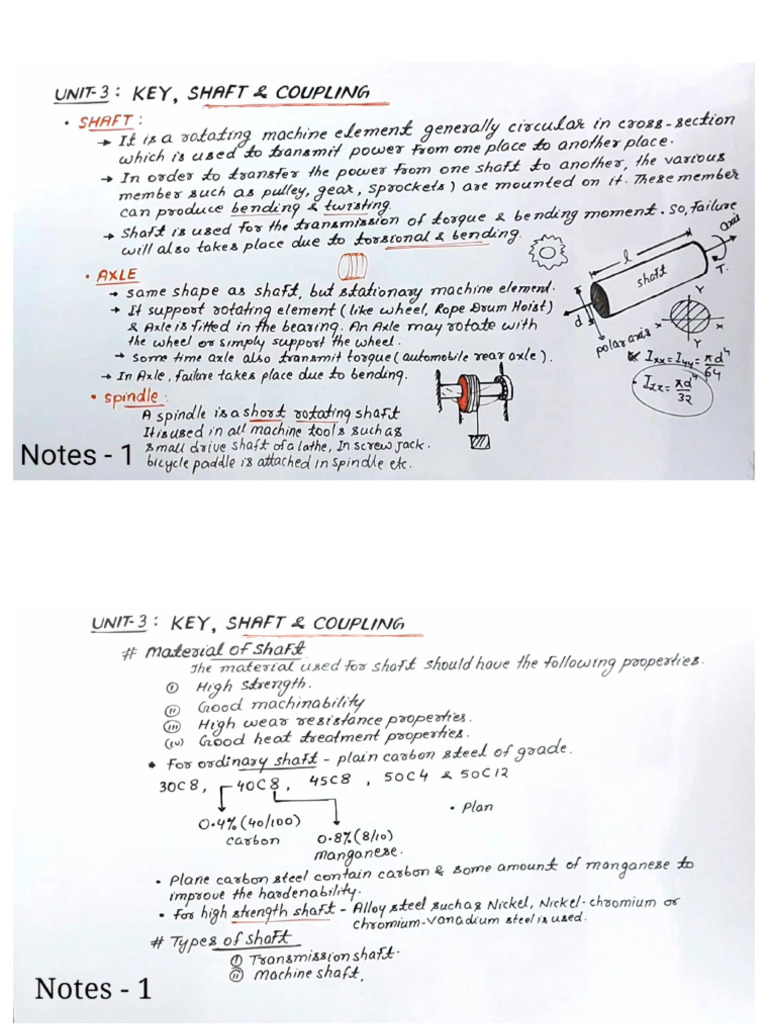 UNIT-3: KEY, SHAFT & COUPLING
• SHAFT:
→ It is a rotating machine element generally circular in cross-section
which is used to transmit power from one place to another place.
→ In order to transfer the power from one shaft to another, the various
member such as pulley, gear, sprockets) are mounted on it. These member
can produce bending & twisting.
→ Shaft is used for the transmission of torque & bending moment. So, failure
will also takes place due to torsional & bending.
axis
l
shaft
T.
d
polar axis
Y
x
x
Y
Ixx = Iyy = πd⁴/64
• Izz = πd⁴/32
• AXLE
→ same shape as shaft, but stationary machine element.
→ It support rotating element (like wheel, Rope Drum Hoist)
& Axle is fitted in the bearing. An Axle may rotate with
the wheel or simply support the wheel.
→ some time axle also transmit torque (automobile rear axle).
→ In Axle, failure takes place due to bending.
• spindle:
A spindle is a short rotating shaft
It is used in all machine tools such as
small drive shaft of a lathe, In screw jack.
bicycle paddle is attached in spindle etc.
Notes - 1
UNIT-3: KEY, SHAFT & COUPLING
# Material of shaft
The material used for shaft should have the following properties.
(i) High strength.
(ii) Good machinability
(iii) High wear resistance properties.
(iv) Good heat treatment properties.
• For ordinary shaft - plain carbon steel of grade.
30C8, 40C8, 45C8, 50C4 & 50C12
• Plan
0.4% (40/100)
carbon
0.8% (8/10)
manganese.
• Plane carbon steel contain carbon & some amount of manganese to
improve the hardenability.
• For high strength shaft - Alloy steel such as Nickel, Nickel-chromium or
chromium-vanadium steel is used.
# Types of shaft
(i) Transmission shaft.
(ii) Machine shaft,
Notes - 1